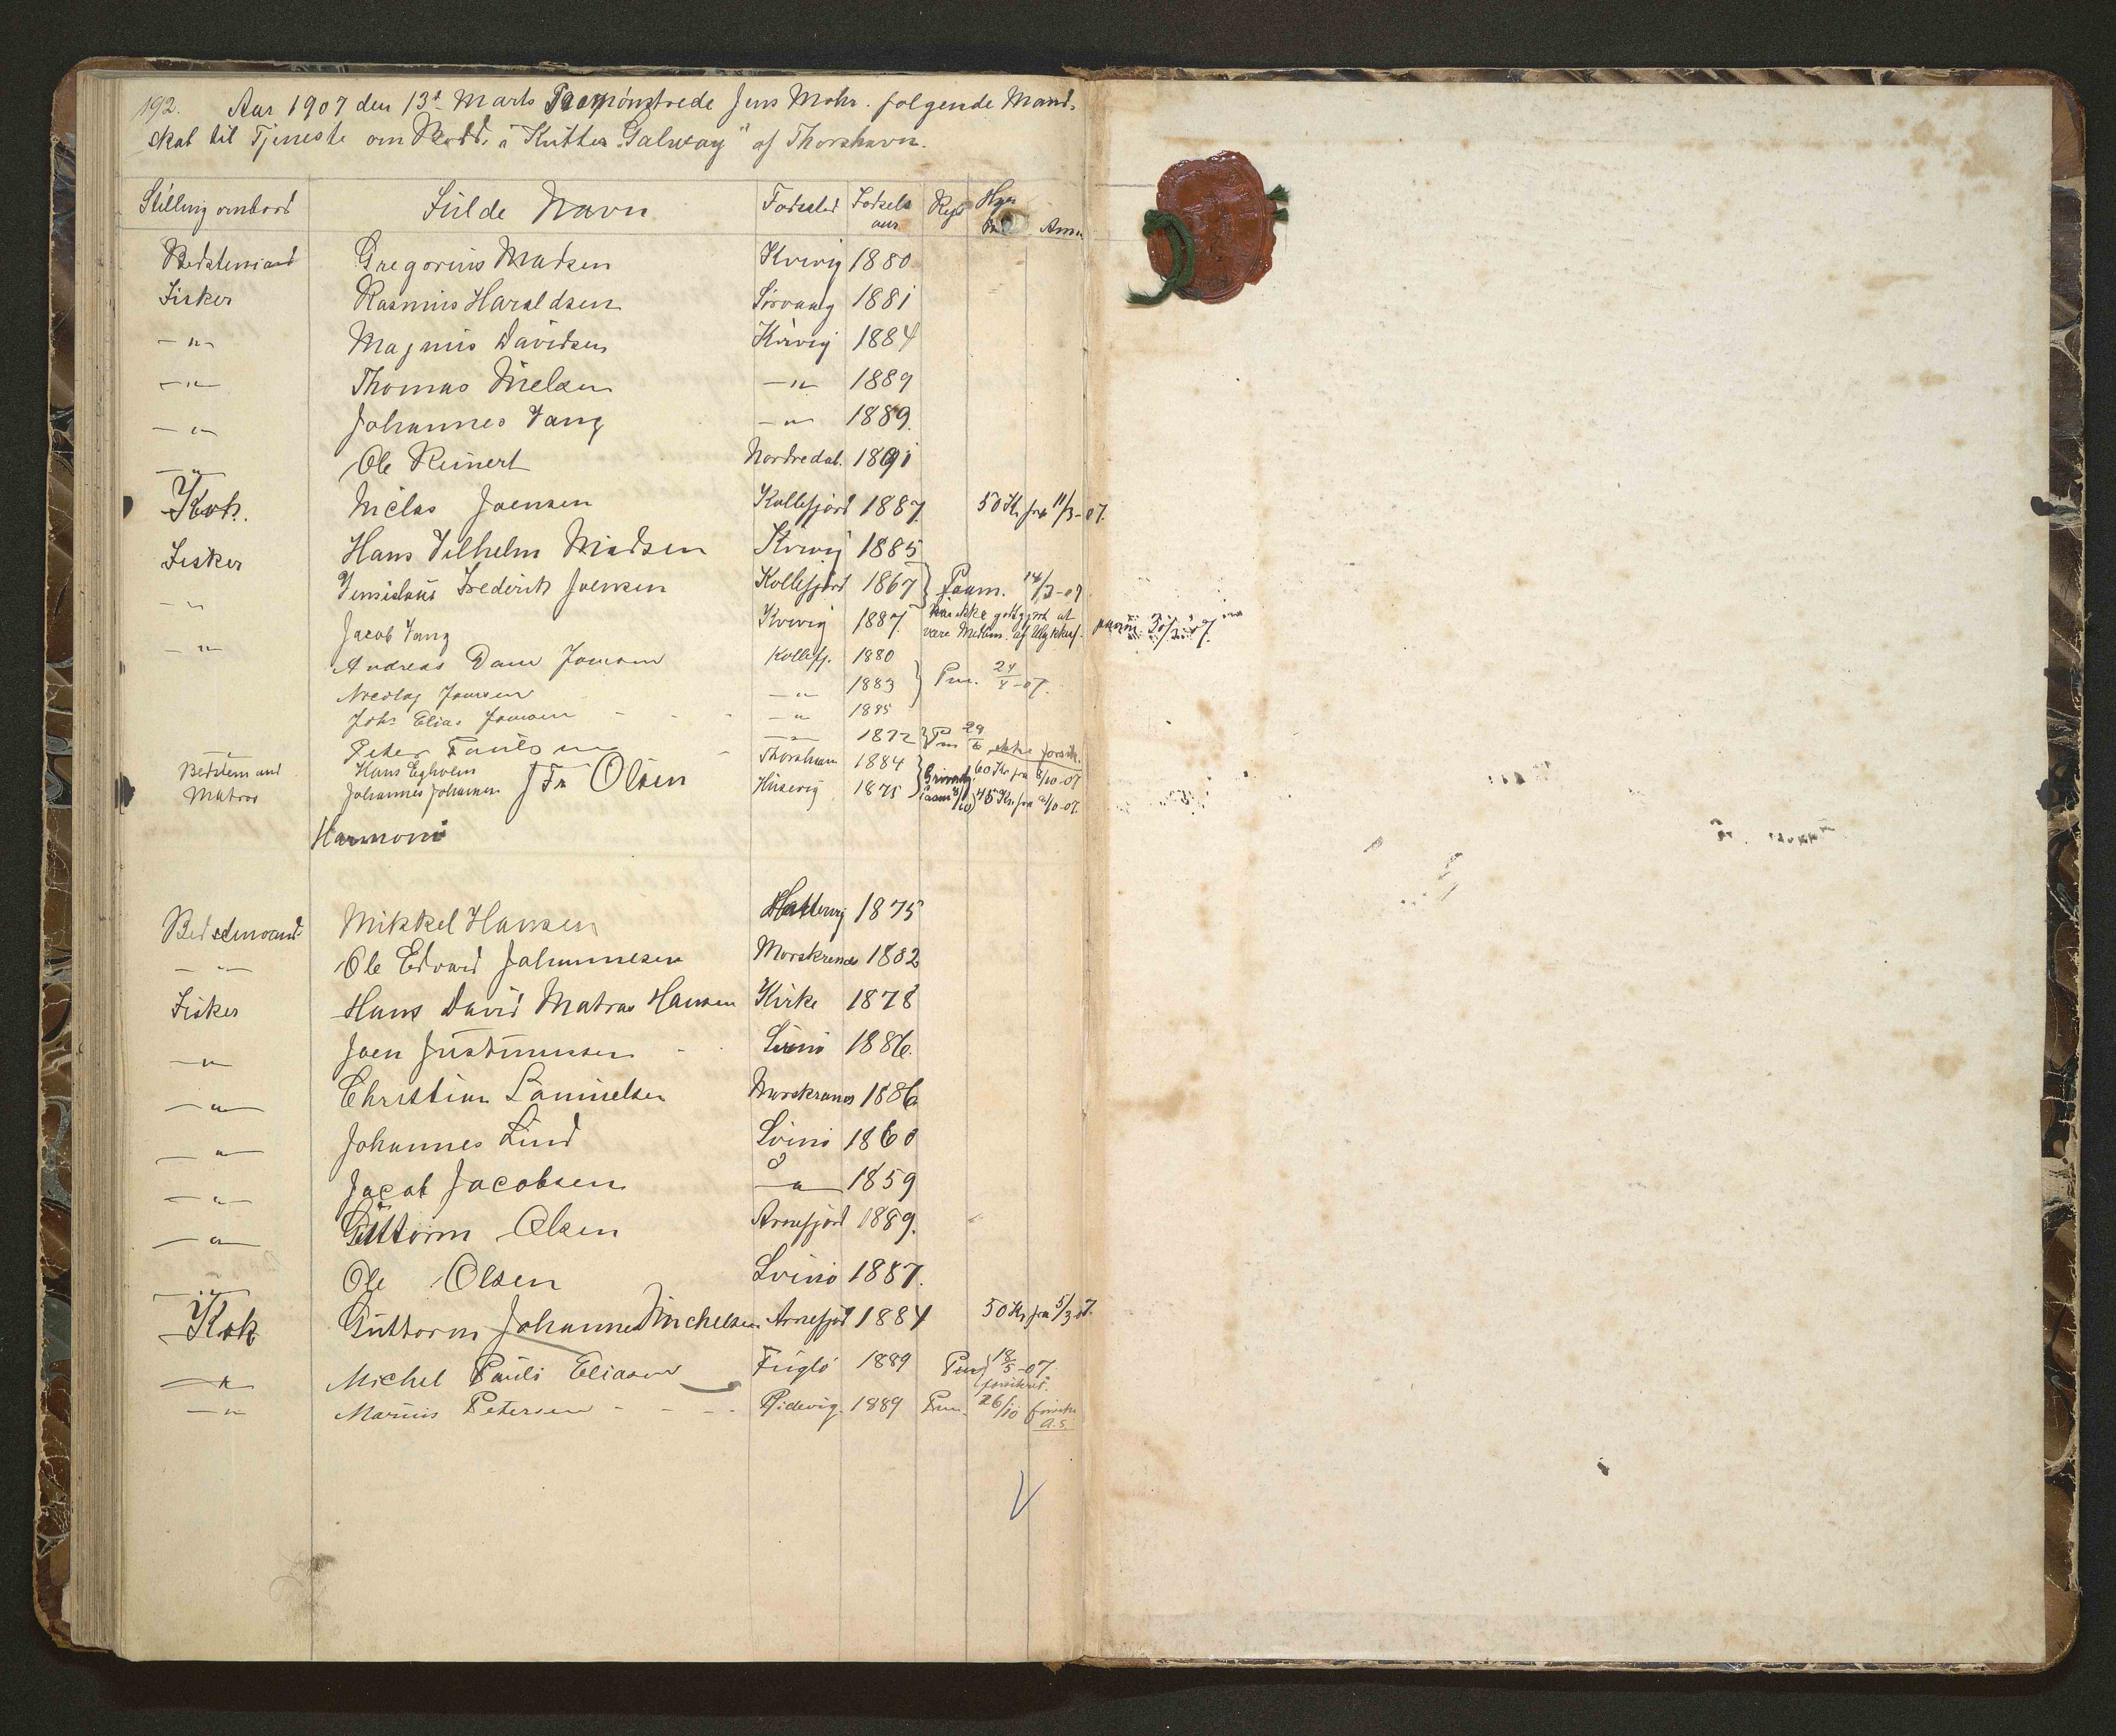 192. Aar 1907 den 13d Marts Paamønstrede Jens Mohr. følgende Mand-
skab til Tjeneste om Bord i "Kutter Galway" af Thorshavn.
Stilling ombord Fulde Navn Fødested Fødsels aar Rejs Hyre Anm
Bedstemand Gregorius Madsen Kvivig 1880
Fisker Rasmus Haraldsen Sørvaag 1881
— " — Magnus Davidsen Kvivig 1884
— " — Thomas Nielsen — " — 1889
— " — Johannes Vang — " — 1889.
— " — Ole Reinert Nordredal. 1891
Kok. Niclas Joensen Kollefjord 1887. 50 Kr fra 11/3-07.
Fisker Hans Vilhelm Madsen Kvivig 1885
— " — Frederik Joensen Kollefjord 1867 } Paam. 14/3-07
— " — Jacob Vang Kvivig 1887. ikke godtgjort at være Medlem af Ulykkesf.
Andreas Dam Joensen Kollefj. 1880
Nicolaj Joensen — " — 1883 } Pm. 24/4-07.
Johs Elias Joensen — " — 1885
Peter Poulsen — " — 1872 } Pm 29/6 ikke forsik.
Bedstemand Hans Egholm Thorshavn 1884 60 Kr fra 8/10-07
Matros Johannes Johansen Husevig 1875 Paam 8/10 45 Kr. fra 8/10-07.
J Fr Olsen
Harmoni
Bedstemand Mikkel Hansen Hattervig 1875
— " — Ole Edvard Johannesen Morskrenes 1882
Fisker Hans David Matras Hansen Kirke 1878
— " — Joen Justinussen Svinø 1886.
— " — Christian Samuelsen Morskranes 1886
— " — Johannes Lind Svinø 1860
— " — Jacob Jacobsen — " — 1859
— " — Guttorm Olsen Arnefjord 1889.
— " — Ole Olsen Svinø 1887.
Kok Guttorm Johannes Michelsen Arnefjord 1884 50 Kr fra 5/3 07.
— " — Michel Pauli Eliasen Fuglø 1889 Pm 18/5-07. forsikret.
— " — Marius Petersen Qvidevig. 1889 Pm. 26/10 A.S.